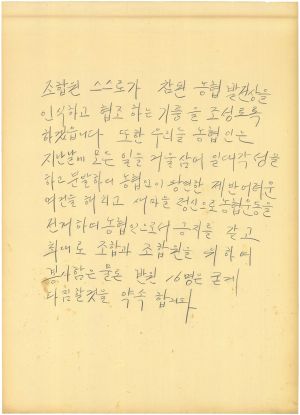 조합원 스스로가 참된 농협 발전상을
인식하고 협조 하는 기풍을 조성토록
하겠읍니다 또한 우리들 농협인은
지난날에 모든 일을 거울삼어 일대각성을
하고 분발하여 농협인이 당면한 제반어려운
여건을 해치고 새마을 정신으로 농협운동을
전개하며 농협인으로서 긍지를 갖고
최대로 조합과 조합원을 위하여
봉사함은 물론 반원 16명은 굳게
다짐할것을 약속 합니다